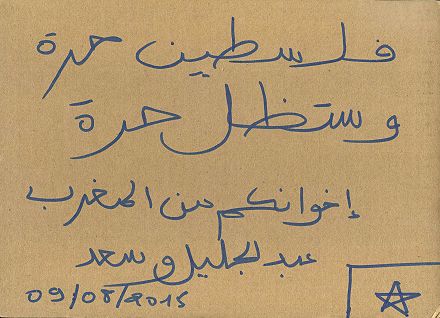 فلسطين حرة
وستظل حرة
إخوانكم من المغرب
عبد الجليل و سعد
09/08/2015